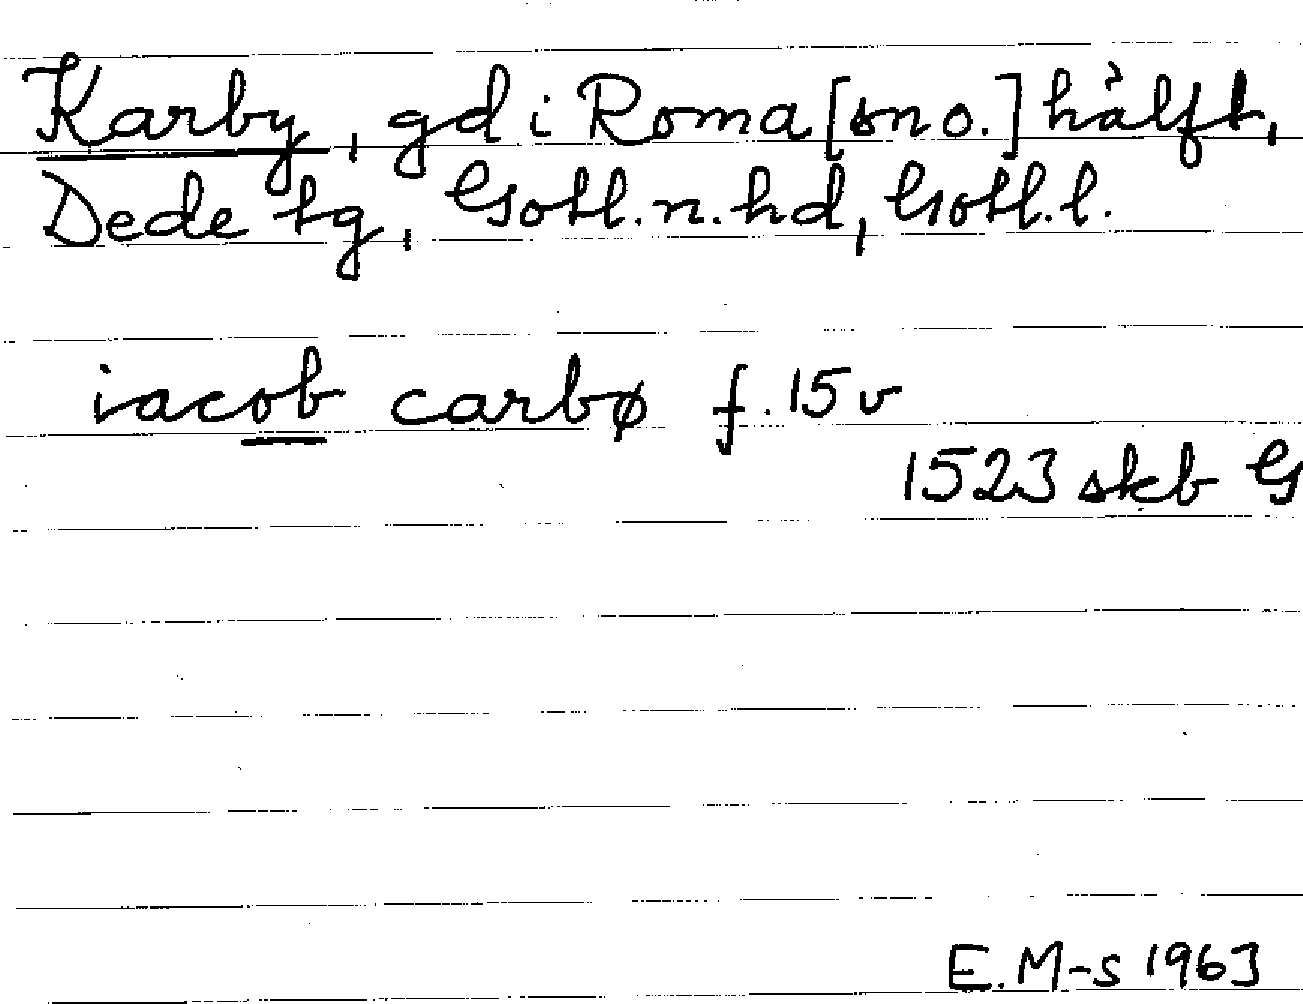 Karby, gd i Roma [sn o.] hälft,
Dede tg, Gotl. n. hd, Gotl. l.
iacob carbø f. 15 v
1523 skb G
E. M-s 1963